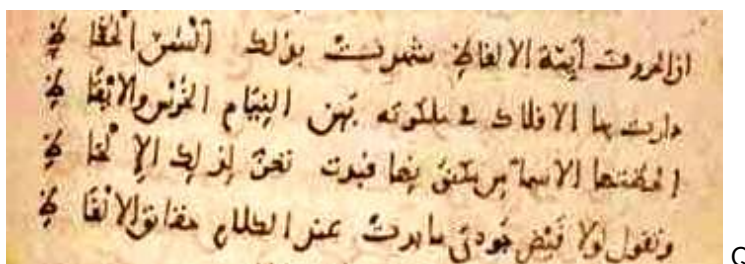 ان الحروف أيمة الالفاظ شهدت بذلك ألسن الحفاظ
دارت بها الافلاك في ملكوته بين النيام الخرس والايقاظ
الحظنها الاسماء من مكنونها فبدت تعز لذلك الالحاظ
وتقول لولا فيض جودي ما بدت عند الكلام حقائق الالفاظ